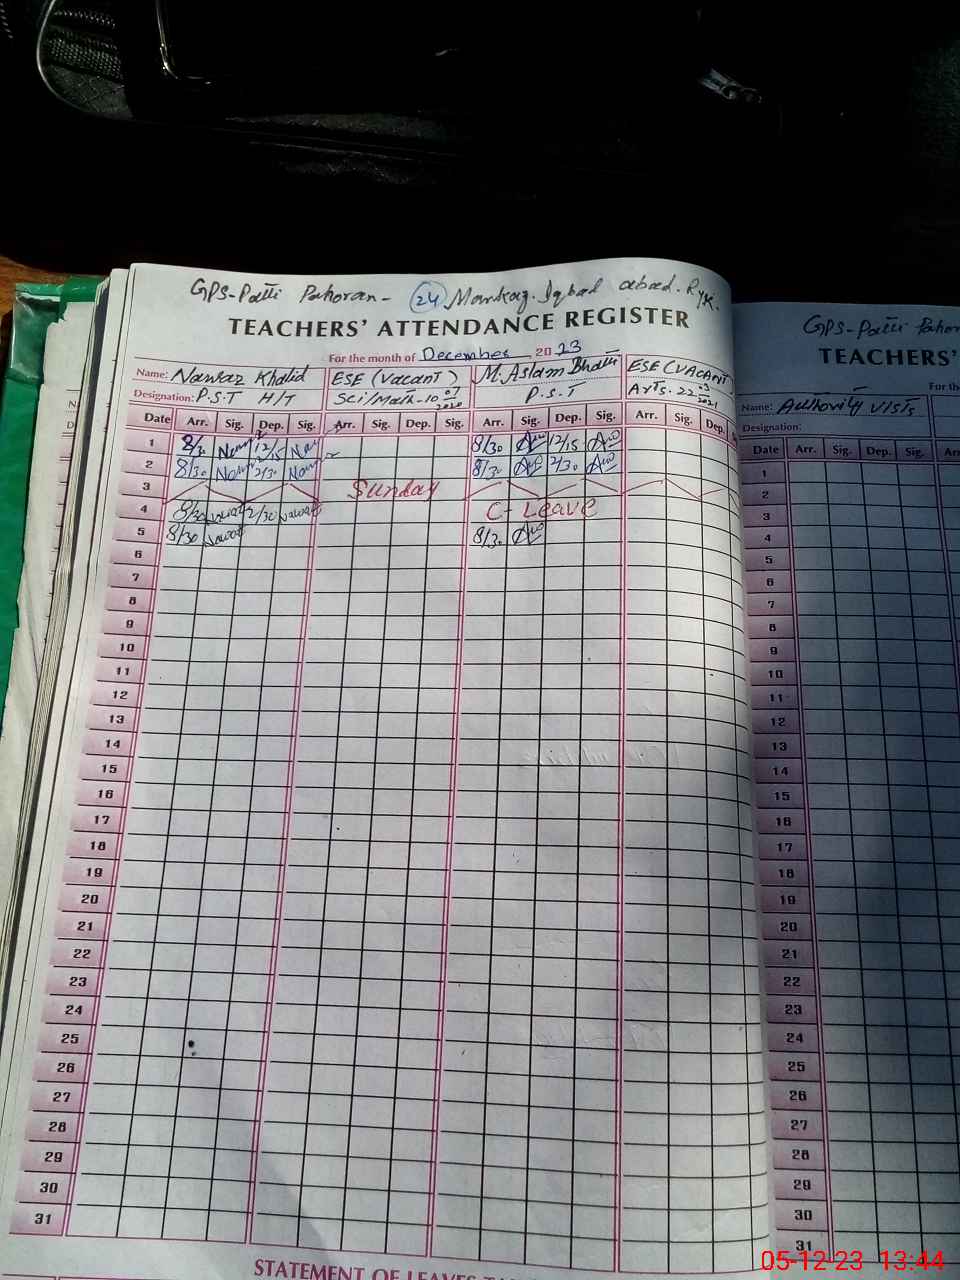 GPS-Patti Pahoran- 24 Markaz. Iqbal abad. Ryk.
TEACHERS' ATTENDANCE REGISTER
For the month of December 2023
Name: Nawaz Khalid ESE (Vacant) M. Aslam Bhatti ESE (VACANT)
Designation: P.S.T H/T Sci/Math-10 07 2020 P.S.T Arts. 22 03 2021
Date Arr. Sig. Dep. Sig. Arr. Sig. Dep. Sig. Arr. Sig. Dep. Sig. Arr. Sig. Dep.
1 8/30 12/15 8/30 12/15
2 8/30 2/30 8/30 2/30
3 Sunday
4 8/30 Nawaz 2/30 Nawaz C-Leave
5 8/30 Nawaz 8/30
6
7
8
9
10
11
12
13
14
15
16
17
18
19
20
21
22
23
24
25
26
27
28
29
30
31
STATEMENT OF LEAVES
GPS-Patti Pahoran
TEACHERS'
For th
Name: Authority Visits
Designation:
Date Arr. Sig. Dep. Sig. Arr
1
2
3
4
5
6
7
8
9
10
11
12
13
14
15
16
17
18
19
20
21
22
23
24
25
26
27
28
29
30
31
05-12-23 13:44